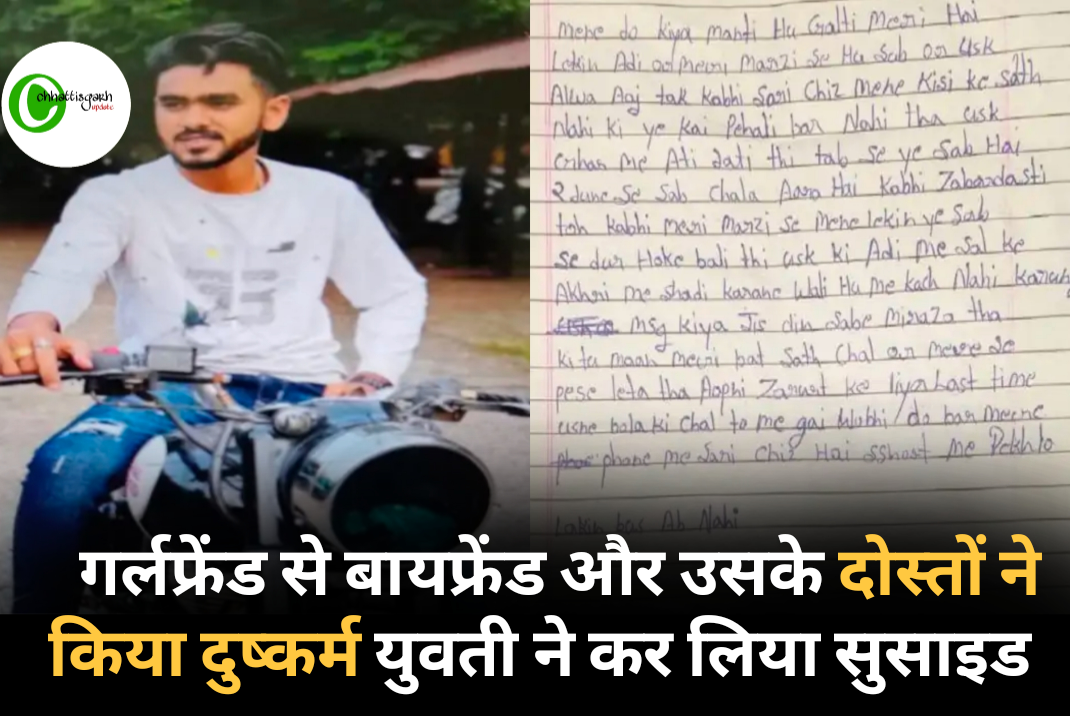 Chhattisgarh
update
mene do kiya manti Hu Galti Meri Hai
Lekin Adi or meri Marzi se Hu Sab or Usk
Alwa Aaj tak Kabhi Sari Chiz Mene Kisi ke Sath
Nahi Ki ye Kai Pehali bar Nahi tha usk
Ghar Me Ati Jati thi tab se ye Sab Hai
2 June Se Sab Chala Hai Kabhi Zabardasti
toh Kabhi meri Marzi se Mene lekin ye Sab
se dur Hoke bali thi usk ki Adi me Sal ke
Akhri me Shadi karane Wali Hu Me kach Nahi
Msg kiya Jis din tha
ki tu maan meri bat Sath Chal or
pese leta tha Zarurt ke liya Last time
usne bola ki chal to me gai Wobhi do bar
phone me Sari Chiz Hai Me Dekhlo
Lekin bas Ab Nahi
गर्लफ्रेंड से बायफ्रेंड और उसके दोस्तों ने
किया दुष्कर्म युवती ने कर लिया सुसाइड